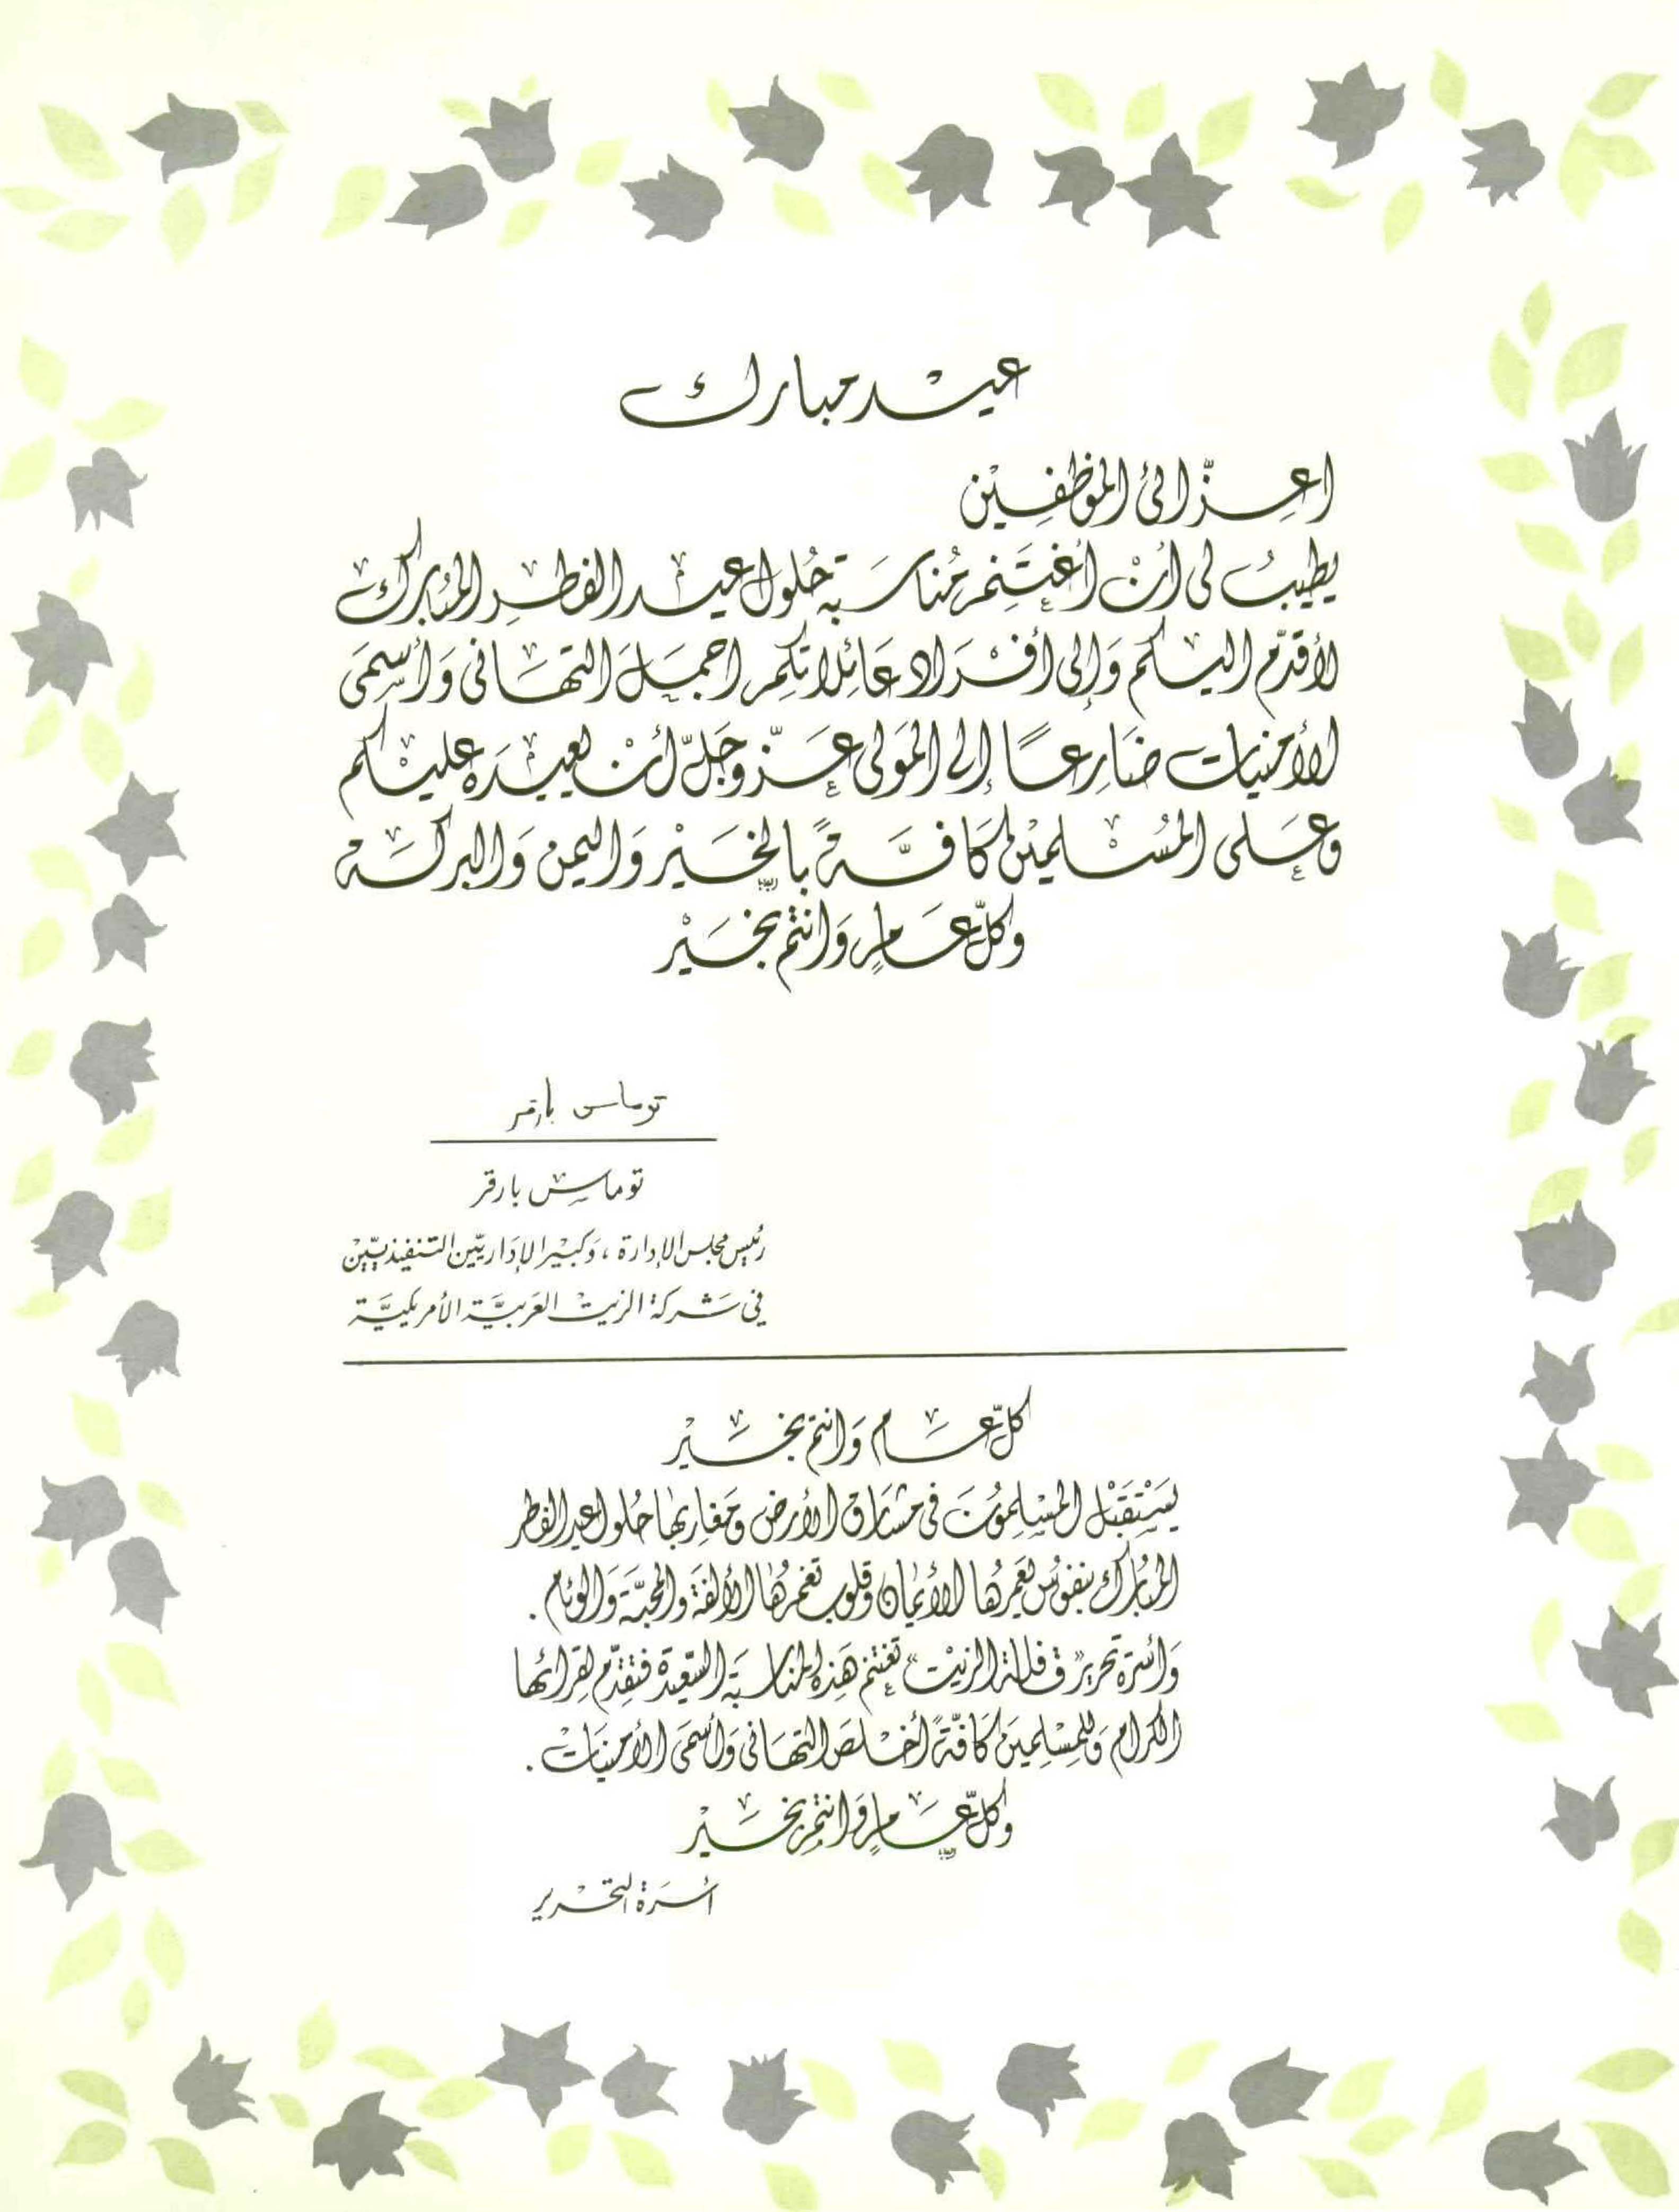 عيد مبارك
اعزائى الموظفين
يطيب لى أن أغتنم مناسبة حلول عيد الفطر المبارك
لأقدم اليكم وإلى أفراد عائلاتكم اجمل التهانى وأسمى
الأمنيات ضارعاً إلى المولى عز وجل أن يعيده عليكم
وعلى المسلمين كافة بالخير واليمن والبركة
وكل عام وانتم بخير
توماس بارقر
توماس بارقر
رئيس مجلس الإدارة ، وكبير الإداريين التنفيذيين
في شركة الزيت العربية الأمريكية
كل عام وانتم بخير
يستقبل المسلمون فى مشارق الأرض ومغاربها حلول عيد الفطر
المبارك بنفوس يعمرها الأيمان وقلوب تغمرها الألفة والمحبة والوئام .
وأسرة تحرير "قافلة الزيت" تغتنم هذه المناسبة السعيدة فتقدم لقرائها
الكرام وللمسلمين كافة أخلص التهانى وأسمى الأمنيات .
وكل عام وانتم بخير
أسرة التحرير